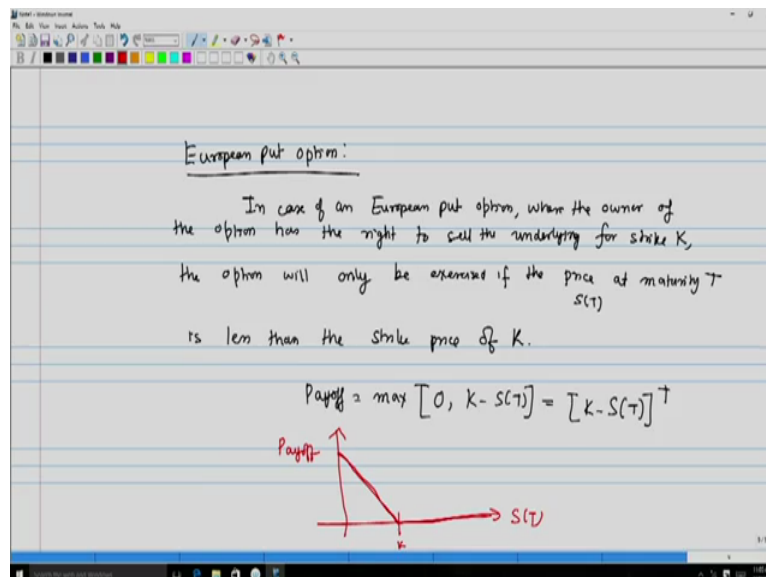 Note1 - Windows Journal
File Edit View Insert Actions Tools Help
B I
European put option:
In case of an European put option, where the owner of
the option has the right to sell the underlying for strike K,
the option will only be exercised if the price at maturity T
S(T)
is less than the strike price of K.
Payoff = max [0, K - S(T)] = [K - S(T)]⁺
Payoff
S(T)
K